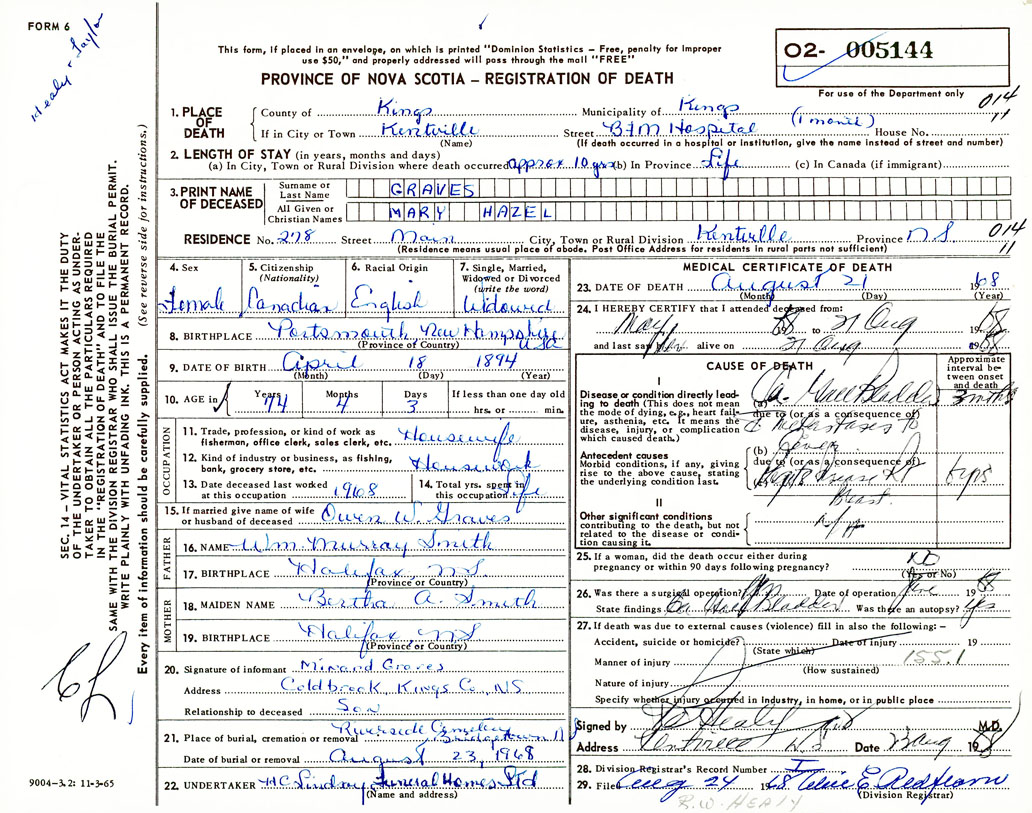 FORM 6
Healy + Taylor
This form, if placed in an envelope, on which is printed "Dominion Statistics – Free, penalty for improper
use $50," and properly addressed will pass through the mail "FREE"
PROVINCE OF NOVA SCOTIA – REGISTRATION OF DEATH
O2- 005144
For use of the Department only
014
11
SEC. 14 – VITAL STATISTICS ACT MAKES IT THE DUTY
OF THE UNDERTAKER OR PERSON ACTING AS UNDER-
TAKER TO OBTAIN ALL THE PARTICULARS REQUIRED
IN THE "REGISTRATION OF DEATH" AND TO FILE THE
SAME WITH THE DIVISION REGISTRAR WHO SHALL ISSUE THE BURIAL PERMIT.
WRITE PLAINLY WITH UNFADING INK. THIS IS A PERMANENT RECORD.
Every item of information should be carefully supplied. (See reverse side for instructions.)
1. PLACE OF DEATH
County of Kings Municipality of Kings
If in City or Town Kentville Street B F M Hospital (1 month) House No.
(Name) (If death occurred in a hospital or institution, give the name instead of street and number)
2. LENGTH OF STAY (in years, months and days)
(a) In City, Town or Rural Division where death occurred approx 10 yrs (b) In Province Life (c) In Canada (if immigrant)
3. PRINT NAME OF DECEASED
Surname or Last Name GRAVES
All Given or Christian Names MARY HAZEL
RESIDENCE No. 278 Street Main City, Town or Rural Division Kentville Province N.S. 014
11
(Residence means usual place of abode. Post Office Address for residents in rural parts not sufficient)
4. Sex Female
5. Citizenship (Nationality) Canadian
6. Racial Origin English
7. Single, Married, Widowed or Divorced (write the word) Widowed
8. BIRTHPLACE Portsmouth, New Hampshire USA
(Province of Country)
9. DATE OF BIRTH April 18 1894
(Month) (Day) (Year)
10. AGE in Years 74 Months 4 Days 3 If less than one day old
hrs. or min.
OCCUPATION
11. Trade, profession, or kind of work as
fisherman, office clerk, sales clerk, etc. Housewife
12. Kind of industry or business, as fishing,
bank, grocery store, etc. Housework
13. Date deceased last worked
at this occupation 1968
14. Total yrs. spent in
this occupation life
15. If married give name of wife
or husband of deceased Owen W. Graves
FATHER
16. NAME Wm. Murray Smith
17. BIRTHPLACE Halifax, N.S.
(Province or Country)
MOTHER
18. MAIDEN NAME Bertha A. Smith
19. BIRTHPLACE Halifax, N.S
(Province or Country)
20. Signature of informant Minard Graves
Address Coldbrook, Kings Co., NS
Relationship to deceased Son
21. Place of burial, cremation or removal Riverside Cemetery Bridgetown N S
Date of burial or removal August 23, 1968
22. UNDERTAKER H.C. Lindsay Funeral Homes Ltd
(Name and address)
9004–3.2: 11-3-65
MEDICAL CERTIFICATE OF DEATH
23. DATE OF DEATH August 21 1968
(Month) (Day) (Year)
24. I HEREBY CERTIFY that I attended deceased from:
May 68 to 21 Aug 1968
and last saw her alive on 21 Aug 1968
CAUSE OF DEATH
Approximate interval between onset and death
I
Disease or condition directly lead-
ing to death (This does not mean
the mode of dying, e.g., heart fail-
ure, asthenia, etc. It means the
disease, injury, or complication
which caused death.)
(a) Ca. Gall Bladder 3 mths
due to (or as a consequence of)
c metastases to
Antecedent causes
Morbid conditions, if any, giving
rise to the above cause, stating
the underlying condition last.
(b) Liver
due to (or as a consequence of)
Breast
6 yrs
II
Other significant conditions
contributing to the death, but not
related to the disease or condi-
tion causing it.
25. If a woman, did the death occur either during
pregnancy or within 90 days following pregnancy? NO
(Yes or No)
26. Was there a surgical operation? Date of operation June 1968
State findings Ca Gall Bladder Was there an autopsy? Yes
27. If death was due to external causes (violence) fill in also the following: –
Accident, suicide or homicide? Date of injury 19
(State which)
Manner of injury 155.1
(How sustained)
Nature of injury
Specify whether injury occurred in industry, in home, or in public place
Signed by Healy M.D.
Address Kentville N S Date Aug 1968
28. Division Registrar's Record Number
29. Filed Aug 24 1968 E. Redfearn
(Division Registrar)
R.W. HEALY